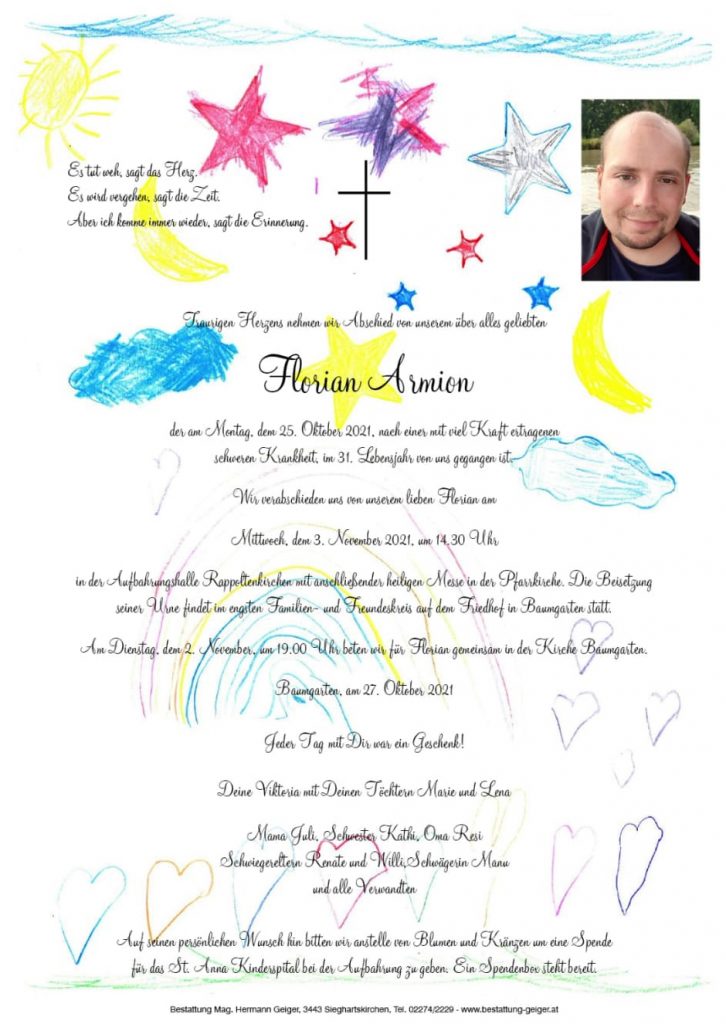 Es tut weh, sagt das Herz.
Es wird vergehen, sagt die Zeit.
Aber ich komme immer wieder, sagt die Erinnerung.
Traurigen Herzens nehmen wir Abschied von unserem über alles geliebten
Florian Armion
der am Montag, dem 25. Oktober 2021, nach einer mit viel Kraft ertragenen
schweren Krankheit, im 31. Lebensjahr von uns gegangen ist.
Wir verabschieden uns von unserem lieben Florian am
Mittwoch, dem 3. November 2021, um 14.30 Uhr
in der Aufbahrungshalle Rappoltenkirchen mit anschließender heiligen Messe in der Pfarrkirche. Die Beisetzung
seiner Urne findet im engsten Familien- und Freundeskreis auf dem Friedhof in Baumgarten statt.
Am Dienstag, dem 2. November, um 19.00 Uhr beten wir für Florian gemeinsam in der Kirche Baumgarten.
Baumgarten, am 27. Oktober 2021
Jeder Tag mit Dir war ein Geschenk!
Deine Viktoria mit Deinen Töchtern Marie und Lena
Mama Juli, Schwester Kathi, Oma Resi
Schwiegereltern Renate und Willi, Schwägerin Manu
und alle Verwandten
Auf seinen persönlichen Wunsch hin bitten wir anstelle von Blumen und Kränzen um eine Spende
für das St. Anna Kinderspital bei der Aufbahrung zu geben. Ein Spendenbox steht bereit.
Bestattung Mag. Hermann Geiger, 3443 Sieghartskirchen, Tel. 02274/2229 - www.bestattung-geiger.at